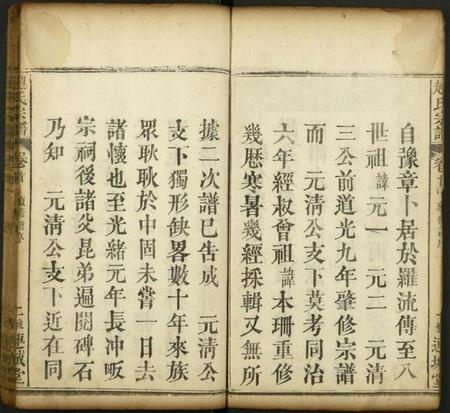 自豫章卜居於羅流傳至八
世祖諱元一 元二 元清
三公前道光九年肇修宗譜
而 元清公支下莫考同治
六年經叔曾祖諱本珊重修
幾歷寒暑幾經採輯又無所
據二次譜已告成 元清公
支下獨形缺畧數十年來族
眾耿耿於中固未嘗一日去
諸懷也至光緒元年長冲畈
宗祠後諸父昆弟遍閱碑石
乃知 元清公支下近在同
趙氏宗譜
卷首
連城堂
趙氏宗譜
卷首
連城堂